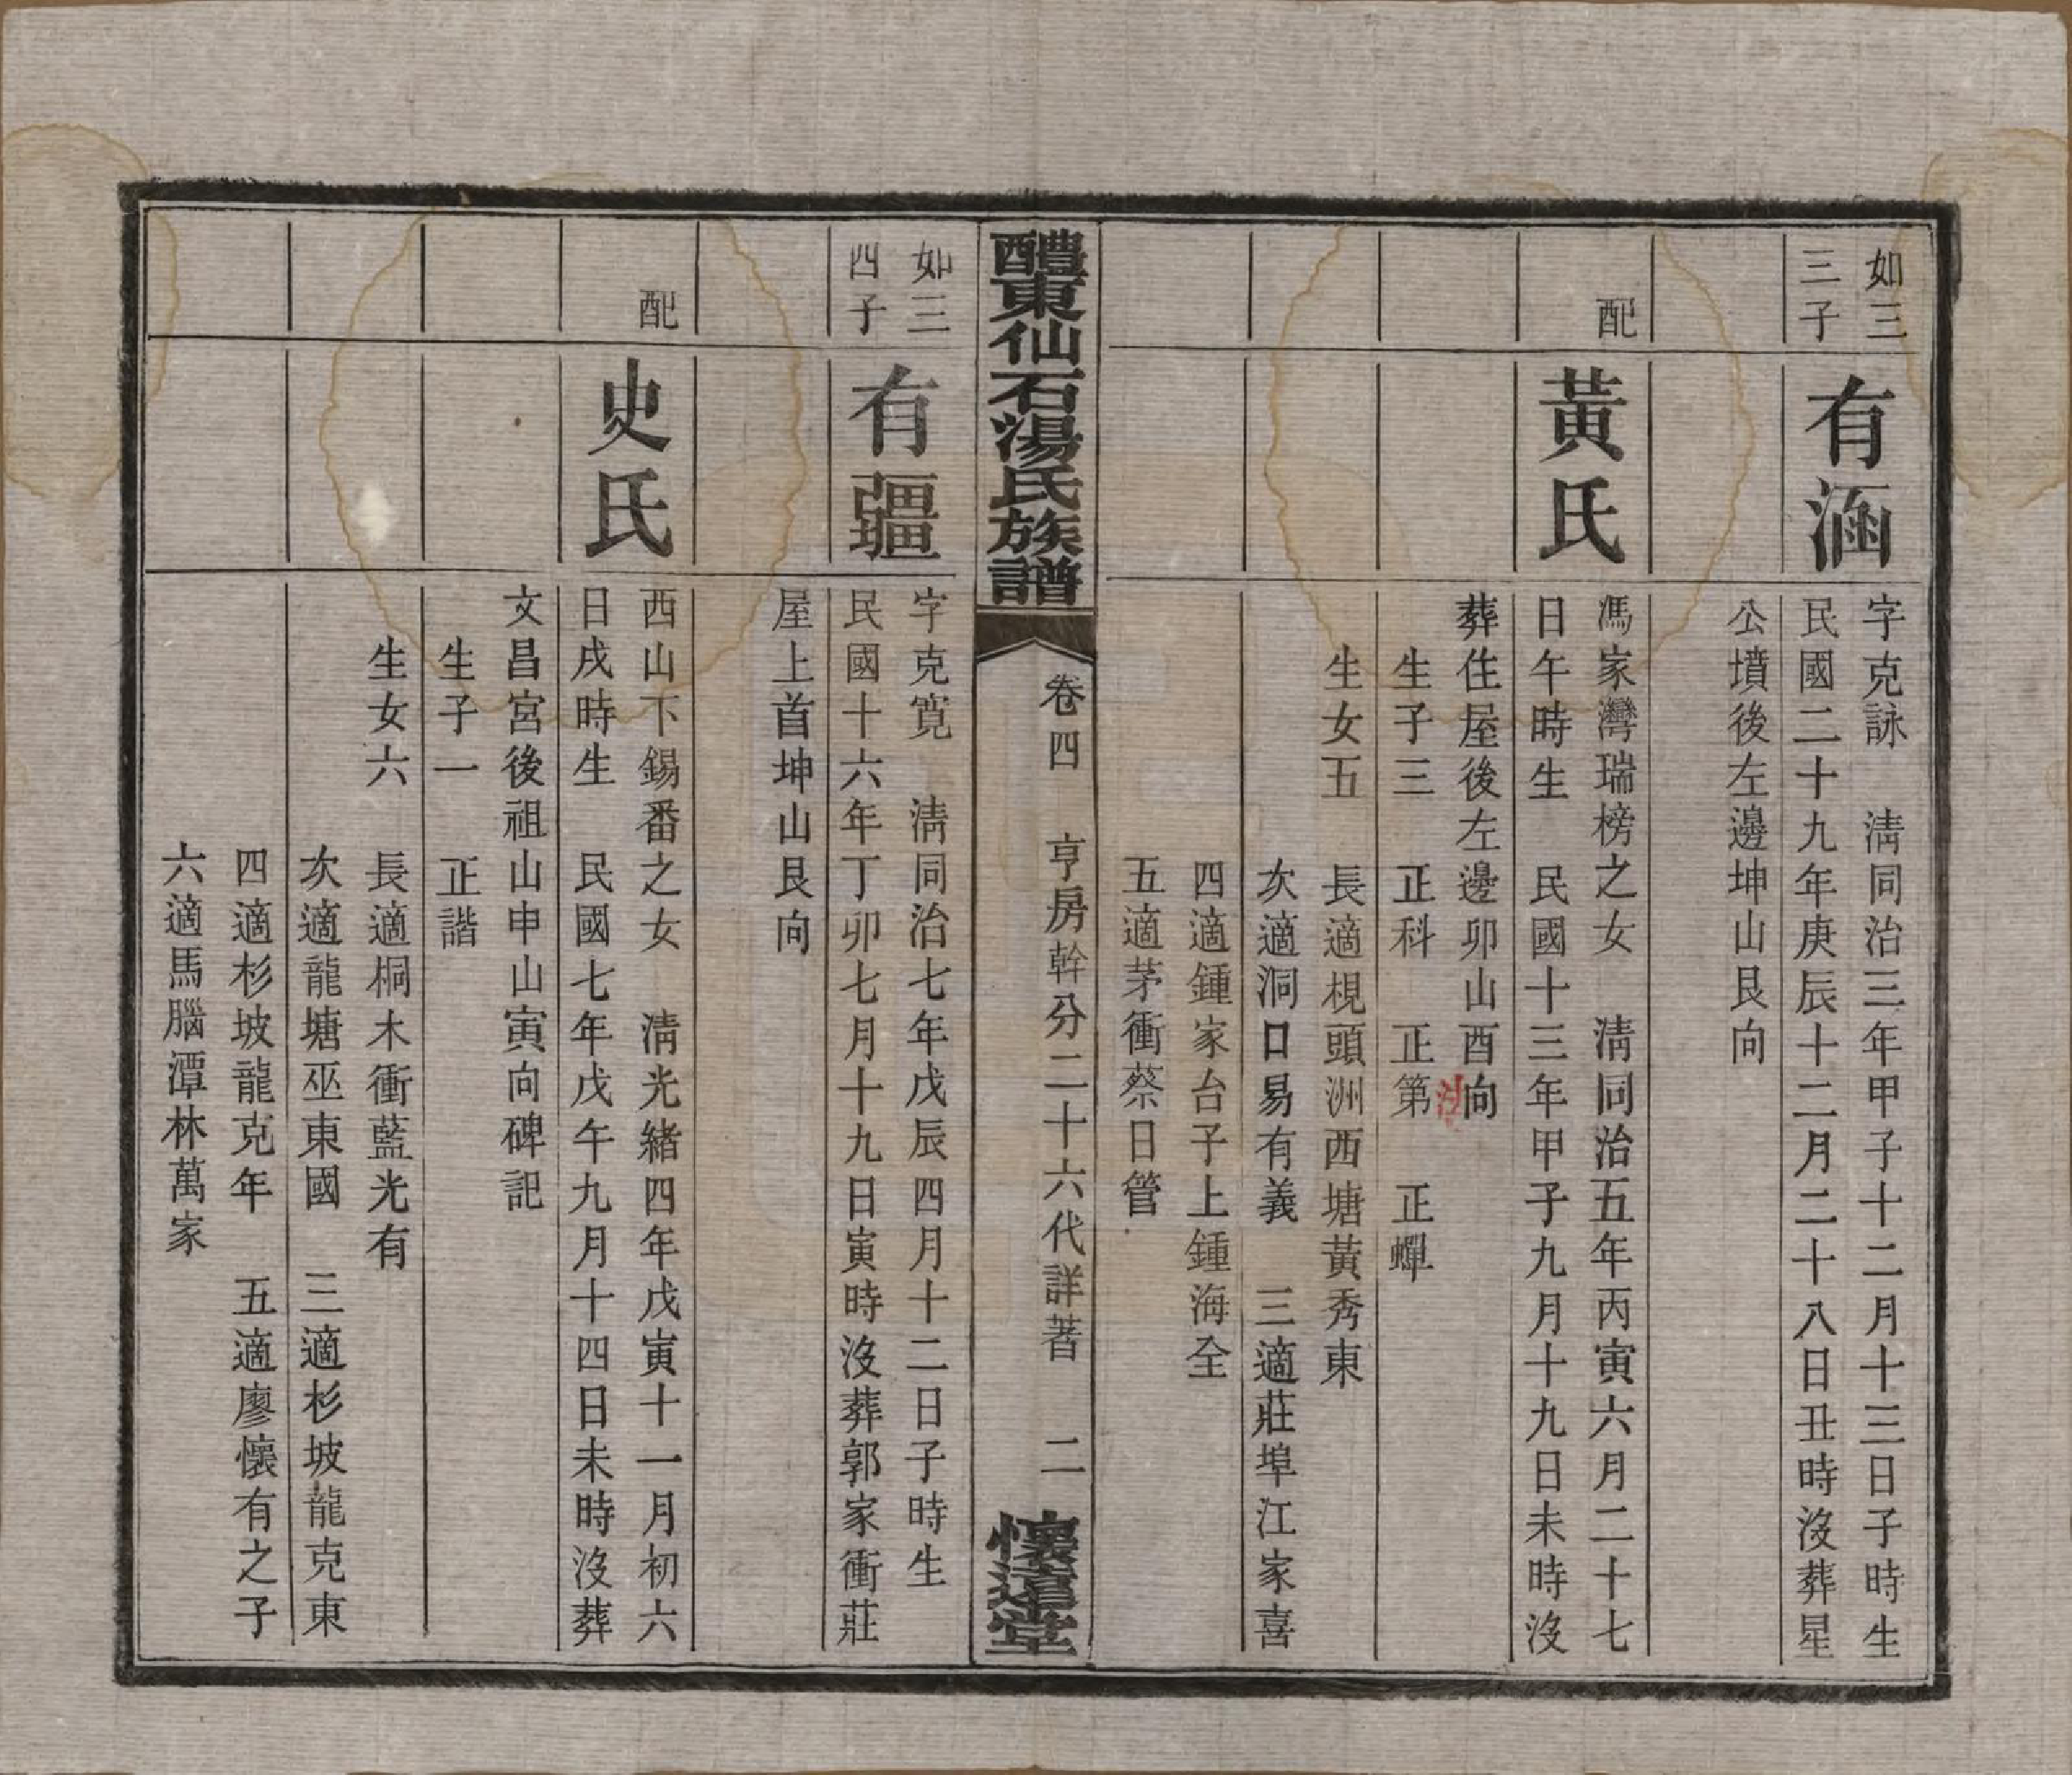 如三
三子
有涵
字克詠　淸同治三年甲子十二月十三日子時生
民國二十九年庚辰十二月二十八日丑時沒葬星
公墳後左邊坤山艮向
配
黃氏
馮家灣瑞榜之女　淸同治五年丙寅六月二十七
日午時生　民國十三年甲子九月十九日未時沒
葬住屋後左邊卯山酉向
生子三　正科　正第　正蟬
生女五　長適梘頭洲西塘黃秀東
次適洞口易有義　三適莊埠江家喜
四適鍾家台子上鍾海全
五適茅衝蔡日管
醴東仙石湯氏族譜
卷四　亨房幹分二十六代詳著　二
懷遠堂
如三
四子
有疆
字克寬　淸同治七年戊辰四月十二日子時生
民國十六年丁卯七月十九日寅時沒葬郭家衝莊
屋上首坤山艮向
配
史氏
西山下錫番之女　淸光緒四年戊寅十一月初六
日戌時生　民國七年戊午九月十四日未時沒葬
文昌宮後祖山申山寅向碑記
生子一　正諧
生女六　長適桐木衝藍光有
次適龍塘巫東國　三適杉坡龍克東
四適杉坡龍克年　五適廖懷有之子
六適馬腦潭林萬家